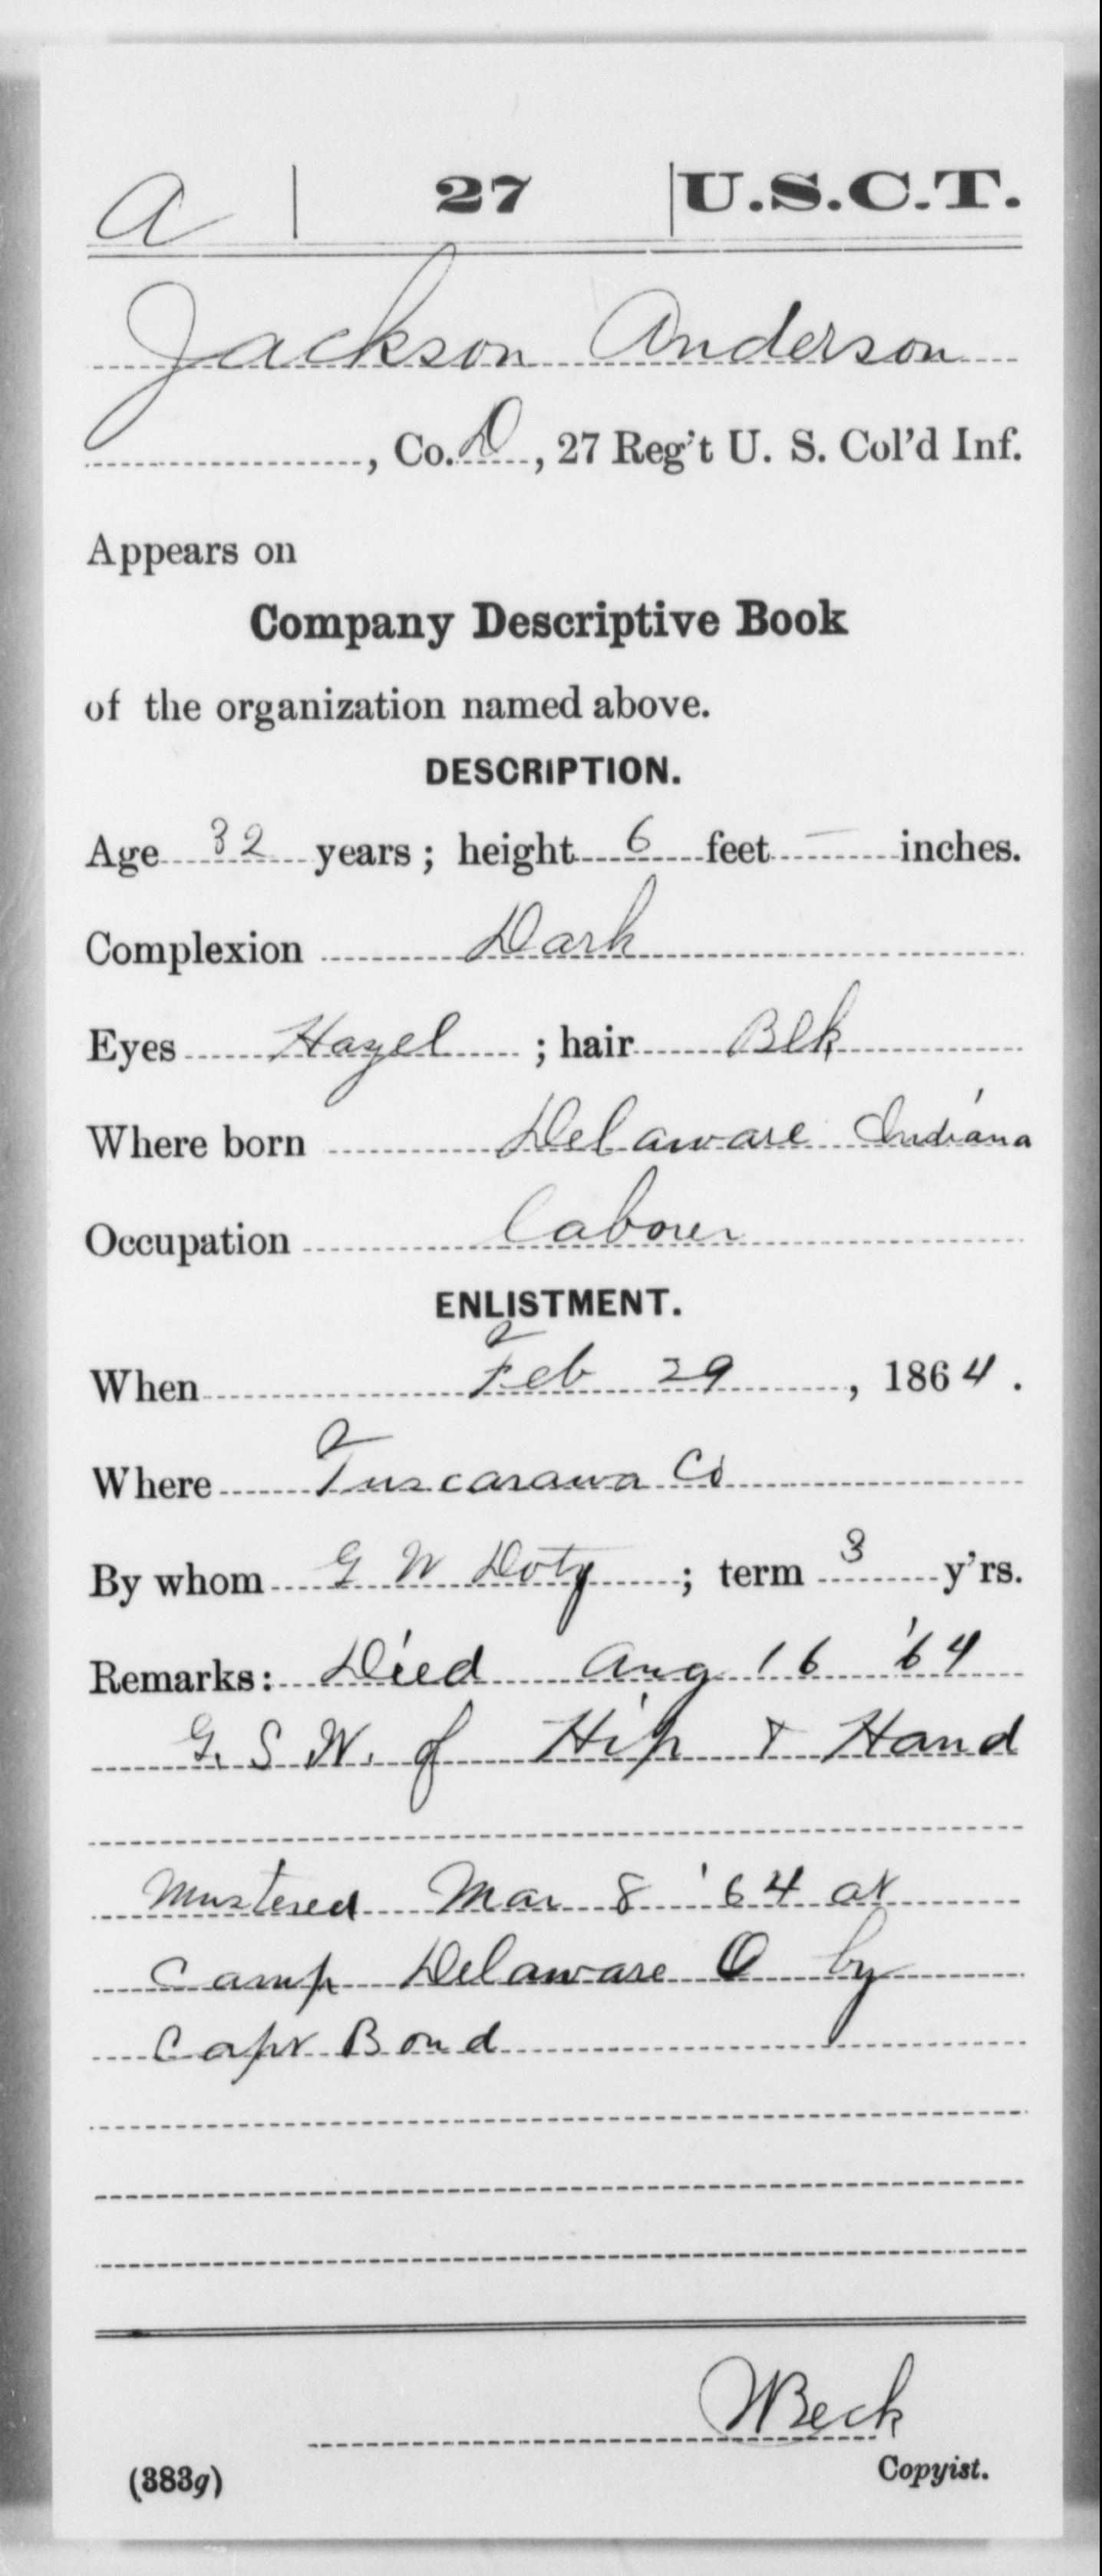 A | 27 | U.S.C.T.
Jackson Anderson
, Co. D, 27 Reg't U. S. Col'd Inf.
Appears on
Company Descriptive Book
of the organization named above.
DESCRIPTION.
Age 32 years; height 6 feet — inches.
Complexion Dark
Eyes Hazel ; hair Blk
Where born Delaware Indiana
Occupation Laborer
ENLISTMENT.
When Feb 29, 1864.
Where Tuscarawa Co
By whom G W Doty ; term 3 y'rs.
Remarks: Died Aug 16 '64
G. S. W. of Hip & Hand
Mustered Mar 8 '64 at
Camp Delaware O by
Capt Bond
Beck
(383g)
Copyist.